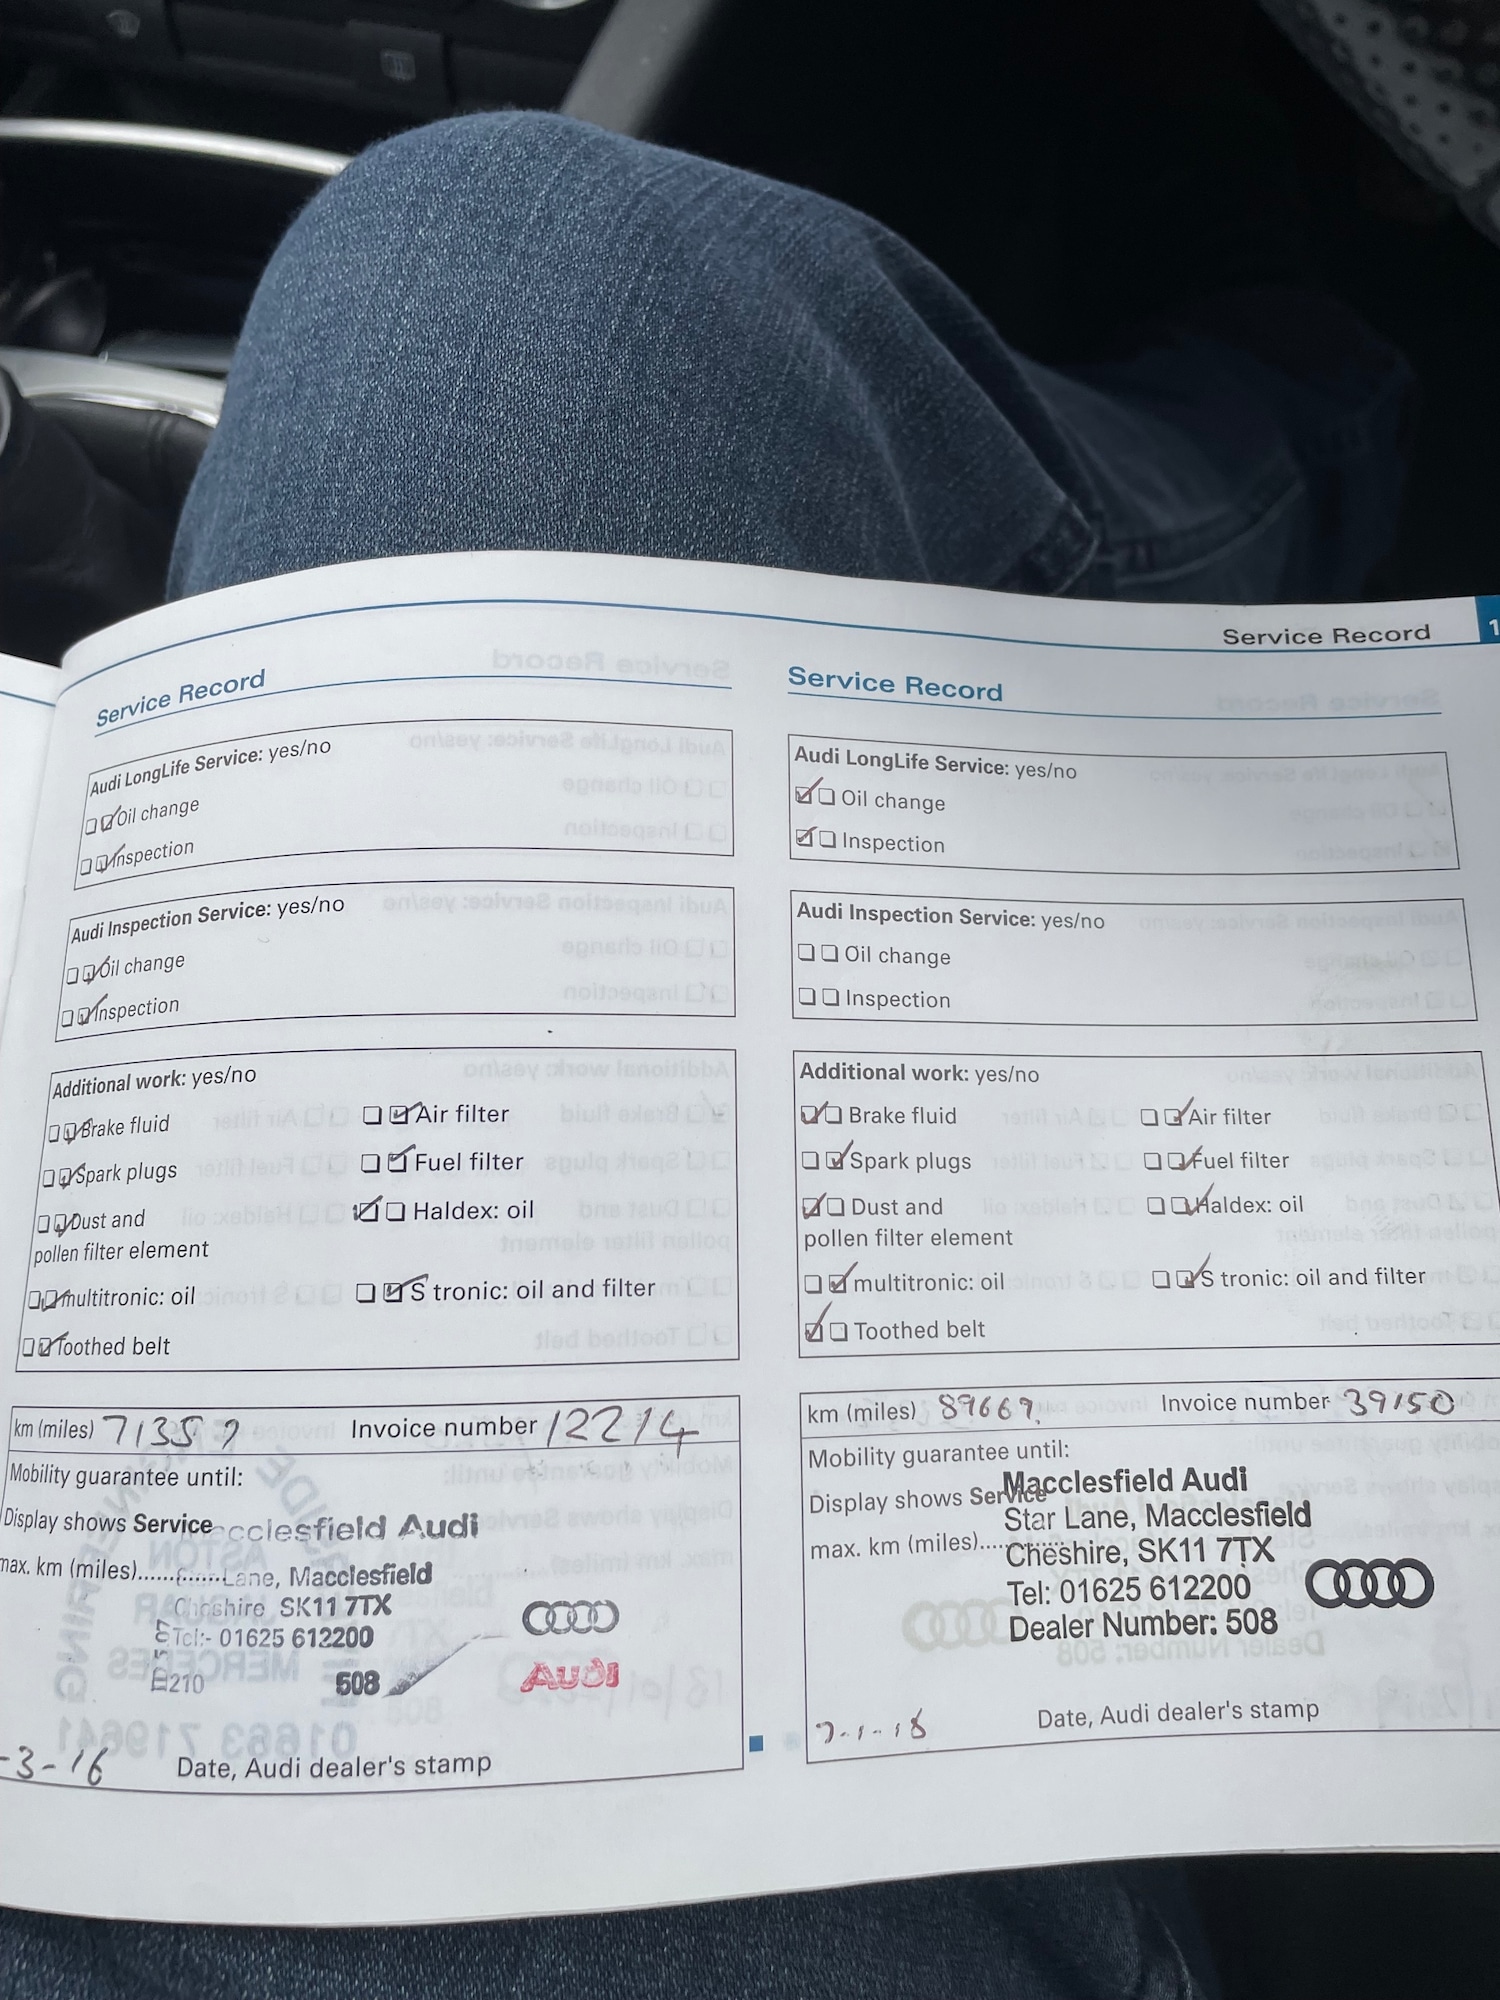 Service Record
1
Service Record
Audi LongLife Service: yes/no
Oil change
Inspection
Audi Inspection Service: yes/no
Oil change
Inspection
Additional work: yes/no
Brake fluid
Air filter
Spark plugs
Fuel filter
Dust and
pollen filter element
Haldex: oil
multitronic: oil
S tronic: oil and filter
Toothed belt
km (miles)
Invoice number 12214
Mobility guarantee until:
Display shows Service
acclesfield Audi
max. km (miles)............Lane, Macclesfield
Cheshire SK11 7TX
Tel:- 01625 612200
508
Audi
-3-16
Date, Audi dealer's stamp
Service Record
Audi LongLife Service: yes/no
Oil change
Inspection
Audi Inspection Service: yes/no
Oil change
Inspection
Additional work: yes/no
Brake fluid
Air filter
Spark plugs
Fuel filter
Dust and
pollen filter element
Haldex: oil
multitronic: oil
S tronic: oil and filter
Toothed belt
km (miles) 89669
Invoice number 39150
Mobility guarantee until:
Macclesfield Audi
Display shows Service
Star Lane, Macclesfield
max. km (miles).....
Cheshire, SK11 7TX
Tel: 01625 612200
Dealer Number: 508
Date, Audi dealer's stamp